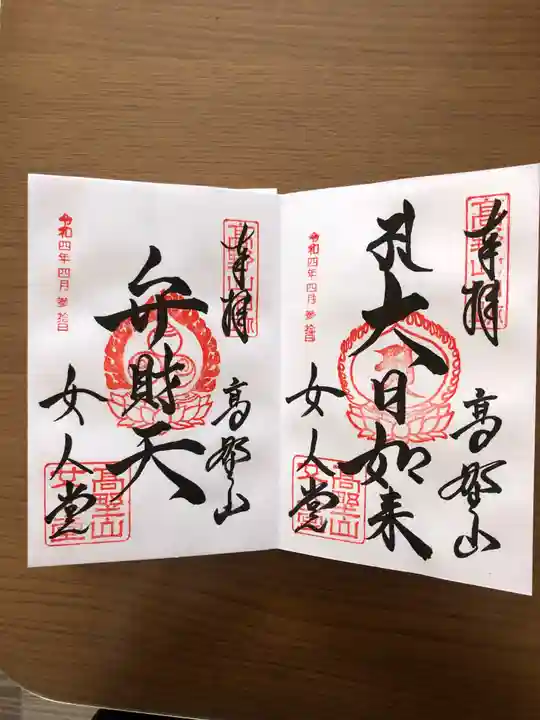 高野山
奉拝
高野山
大日如来
女人堂
高野山
女人堂
令和四年四月参拾日
奉拝
高野山
弁財天
女人堂
高野山
女人堂
令和四年四月参拾日